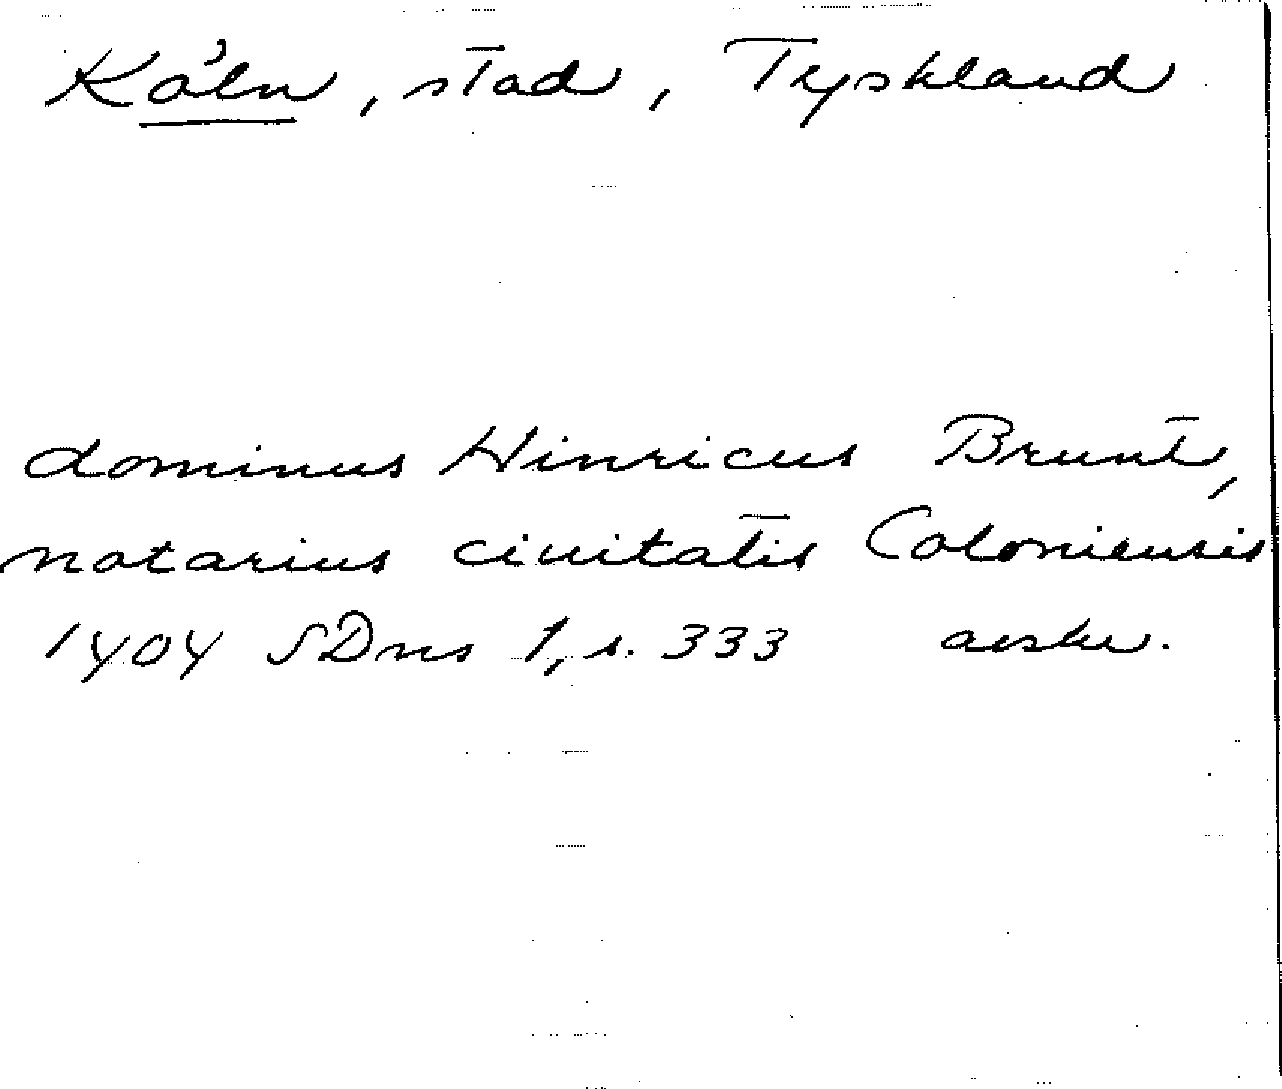 Köln, stad, Tyskland
dominus Hinricus Brunt,
notarius ciuitatis Coloniensis
1404 SDns 1, s. 333 avskr.